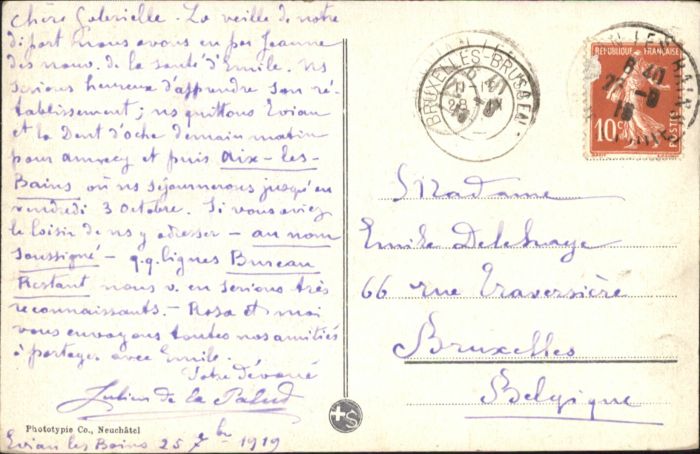 Chère Gabrielle. La veille de notre
départ nous avons eu par Jeanne
des nouv. de la santé d'Emile. ns
serions heureux d'apprendre son ré-
tablissement; ns quittons Evian
et la Dent d'Oche demain matin
pour annecy et puis Aix-les-
Bains où ns séjournerons jusqu'au
vendredi 3 octobre. Si vous aviez
le loisir de ns y adresser - au nom
soussigné - q.q. lignes Bureau
Restant nous v. en serions très
reconnaissants. - Rosa et moi
vous envoyons toutes nos amitiés
à partager avec Emile.
Votre dévoué
de la Palud
Phototypie Co., Neuchâtel
Evian les Bains 25 7bre 1919
BRUXELLES-BRUSSEL
REPUBLIQUE FRANÇAISE
10c
POSTES
Madame
Emile Delehaye
66 rue Traversière
Bruxelles
Belgique